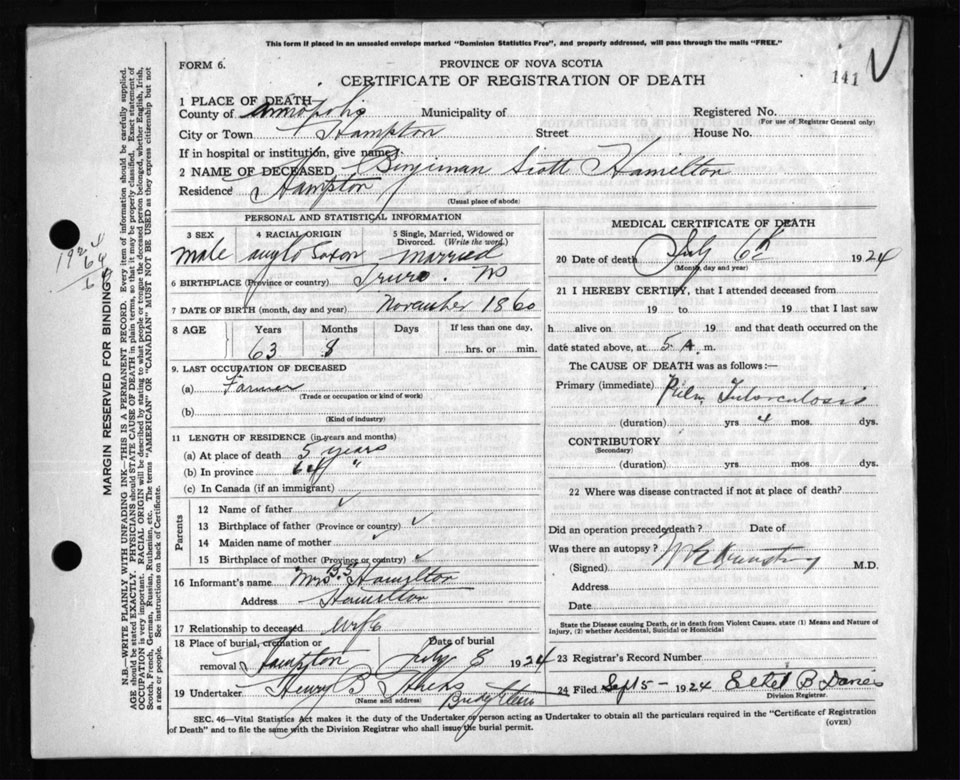 This form if placed in an unsealed envelope marked "Dominion Statistics Free", and properly addressed, will pass through the mails "FREE."
FORM 6.
PROVINCE OF NOVA SCOTIA
CERTIFICATE OF REGISTRATION OF DEATH
141
1 PLACE OF DEATH
County of Annapolis Municipality of Registered No.
(For use of Registrar General only)
City or Town Hampton Street House No.
If in hospital or institution, give name
2 NAME OF DECEASED Benjiman Scott Hamilton
Residence Hampton
(Usual place of abode)
PERSONAL AND STATISTICAL INFORMATION
3 SEX 4 RACIAL ORIGIN 5 Single, Married, Widowed or Divorced. (Write the word.)
male anglo Saxon married
6 BIRTHPLACE (Province or country) Truro. NS
7 DATE OF BIRTH (month, day and year) November 1860
8 AGE Years Months Days If less than one day,
63 8 hrs. or min.
9. LAST OCCUPATION OF DECEASED
(a) Farmer
(Trade or occupation or kind of work)
(b)
(Kind of industry)
11 LENGTH OF RESIDENCE (in years and months)
(a) At place of death 5 years
(b) In province 64 "
(c) In Canada (if an immigrant)
Parents
12 Name of father ✓
13 Birthplace of father (Province or country) ✓
14 Maiden name of mother ✓
15 Birthplace of mother (Province or country) ✓
16 Informant's name Mrs B.S. Hamilton
Address Hamilton
17 Relationship to deceased wife
18 Place of burial, cremation or removal Hampton Date of burial July 8 1924
19 Undertaker Henry B Hicks
(Name and address) Bridgetown
MEDICAL CERTIFICATE OF DEATH
20 Date of death July 6th 1924
(Month, day and year)
21 I HEREBY CERTIFY, that I attended deceased from
19 to 19 that I last saw
h alive on 19 and that death occurred on the
date stated above, at 5 A. m.
The CAUSE OF DEATH was as follows:—
Primary (immediate) Pulm Tuberculosis
(duration) yrs 4 mos. dys.
CONTRIBUTORY
(Secondary)
(duration) yrs. mos. dys.
22 Where was disease contracted if not at place of death?
Did an operation precede death? Date of
Was there an autopsy?
(Signed) M.D.
Address
Date
State the Disease causing Death, or in death from Violent Causes, state (1) Means and Nature of Injury, (2) whether Accidental, Suicidal or Homicidal
23 Registrar's Record Number
24 Filed Sept 5- 1924 Ethel B Davies
Division Registrar.
SEC. 46—Vital Statistics Act makes it the duty of the Undertaker or person acting as Undertaker to obtain all the particulars required in the "Certificate of Registration of Death" and to file the same with the Division Registrar who shall issue the burial permit.
(OVER)
MARGIN RESERVED FOR BINDING
N.B.—WRITE PLAINLY WITH UNFADING INK—THIS IS A PERMANENT RECORD. Every item of information should be carefully supplied.
AGE should be stated EXACTLY. PHYSICIANS should STATE CAUSE OF DEATH in plain terms, so that it may be properly classified. Exact statement of
OCCUPATION is very important. RACIAL ORIGIN will be described by stating to what people or tongue the deceased person belonged, whether English, Irish,
Scotch, French, German, Russian, Ruthenian, etc. The terms "AMERICAN" OR "CANADIAN" MUST NOT BE USED as they express citizenship but not
a race or people. See instructions on back of Certificate.
1924
64